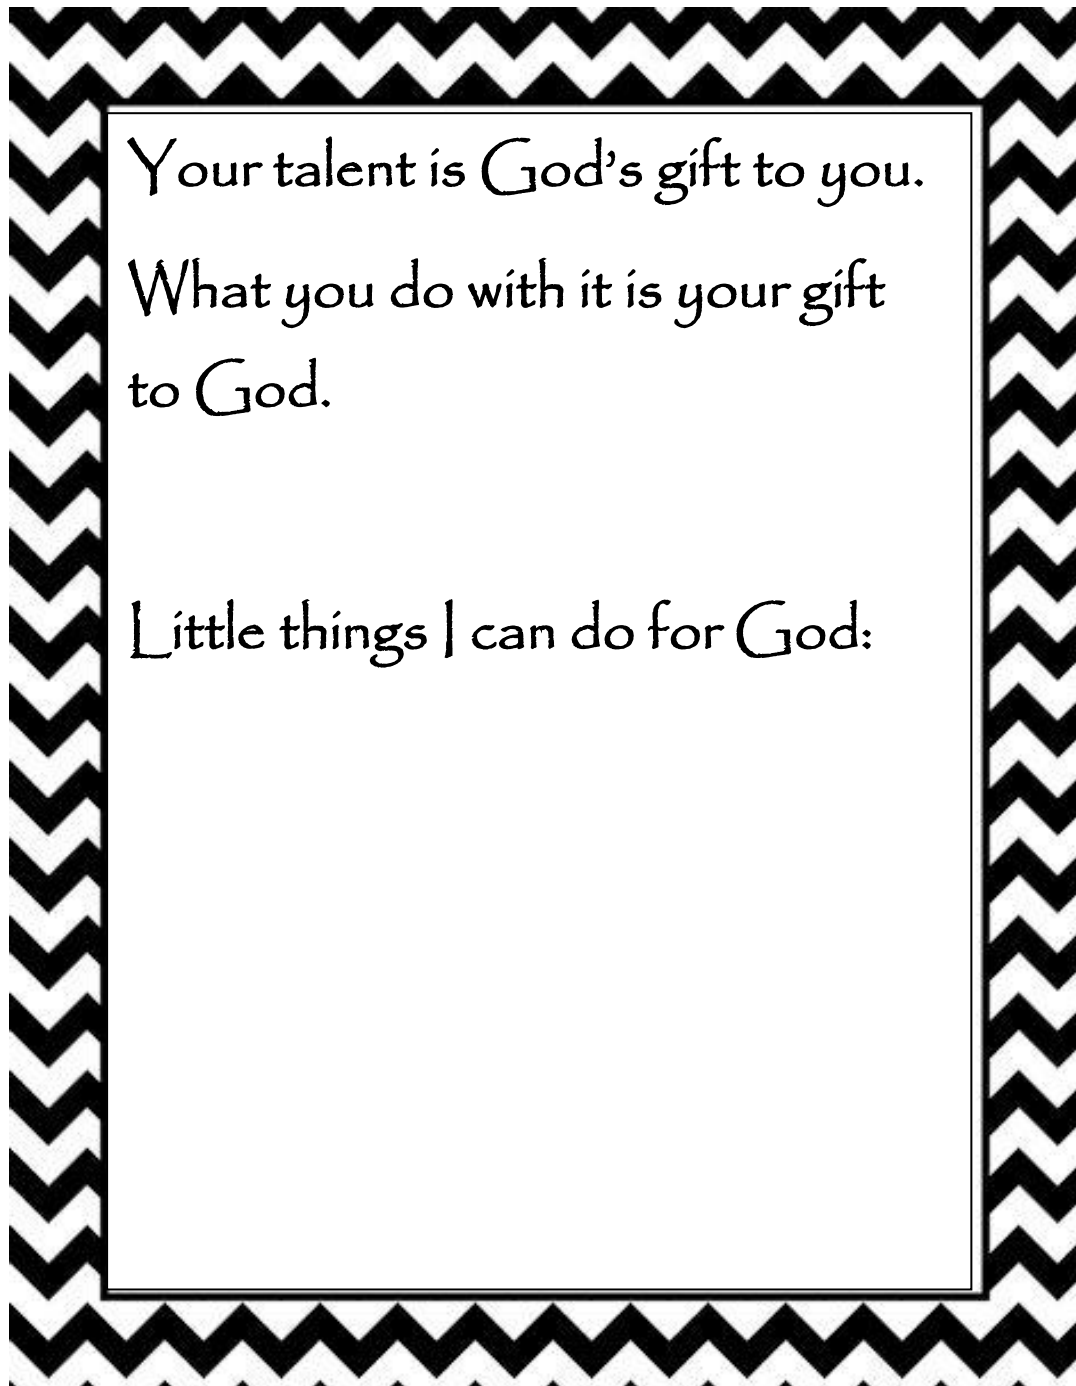 Your talent is God's gift to you.
What you do with it is your gift
to God.
Little things I can do for God: